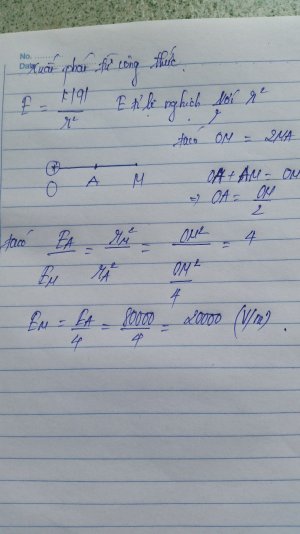 No.
Date
Xuất phát từ công thức
E = k|q| / r² E tỉ lệ nghịch với r²
ta có OM = 2MA
OA + AM = OM
⇒ OA = OM / 2
⊕
O A M
ta có E_A / E_M = r_M² / r_A² = OM² / (OM² / 4) = 4
E_M = E_A / 4 = 80000 / 4 = 20000 (V/m).